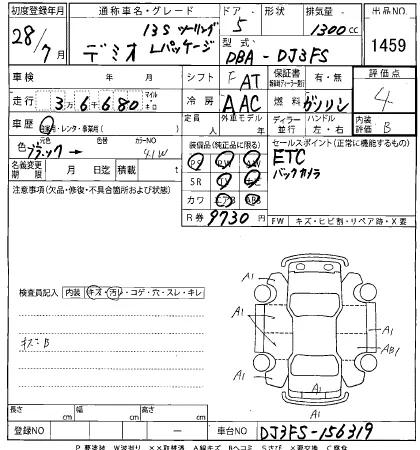 初度登録年月 通称車名・グレード ドア 形状 排気量 出品NO
28年/7月 デミオ 13S ツーリング Lパッケージ 5 1300cc 1459
型式 DBA-DJ3FS
車検 年 月 シフト FAT 保証書 有・無 評価点
走行 3万6千680 マイル・キロ 冷房 AAC 燃料 ガソリン 4
車歴 自家用・レンタ・事業用( ) 定員 人 外車モデル 年 ディーラー 並行 ハンドル 左・右 内装評価 B
色 元色 ブラック 色替 カラーNO 41W 装備品(純正品に限る) セールスポイント(正常に機能するもの)
PS PW AW ETC
名義変更期限 月 日迄 積載 t SR TV ナビ バックカメラ
注意事項(欠品・修復・不具合箇所および状態) カワ エアB ABS
R券 9730円
FW キズ・ヒビ割・リペア跡・X要
検査員記入 内装 キズ・汚レ・コゲ・穴・スレ・キレ
キズ B
A1 A1
A1 A1
A1 AB1
A1 A1
A1
長さ cm 幅 cm 高さ cm
登録NO 車台NO DJ3FS-156319
P要塗装 W波当り XX取替済 A線キズ Bヘコミ Sさび X要交換 C腐食